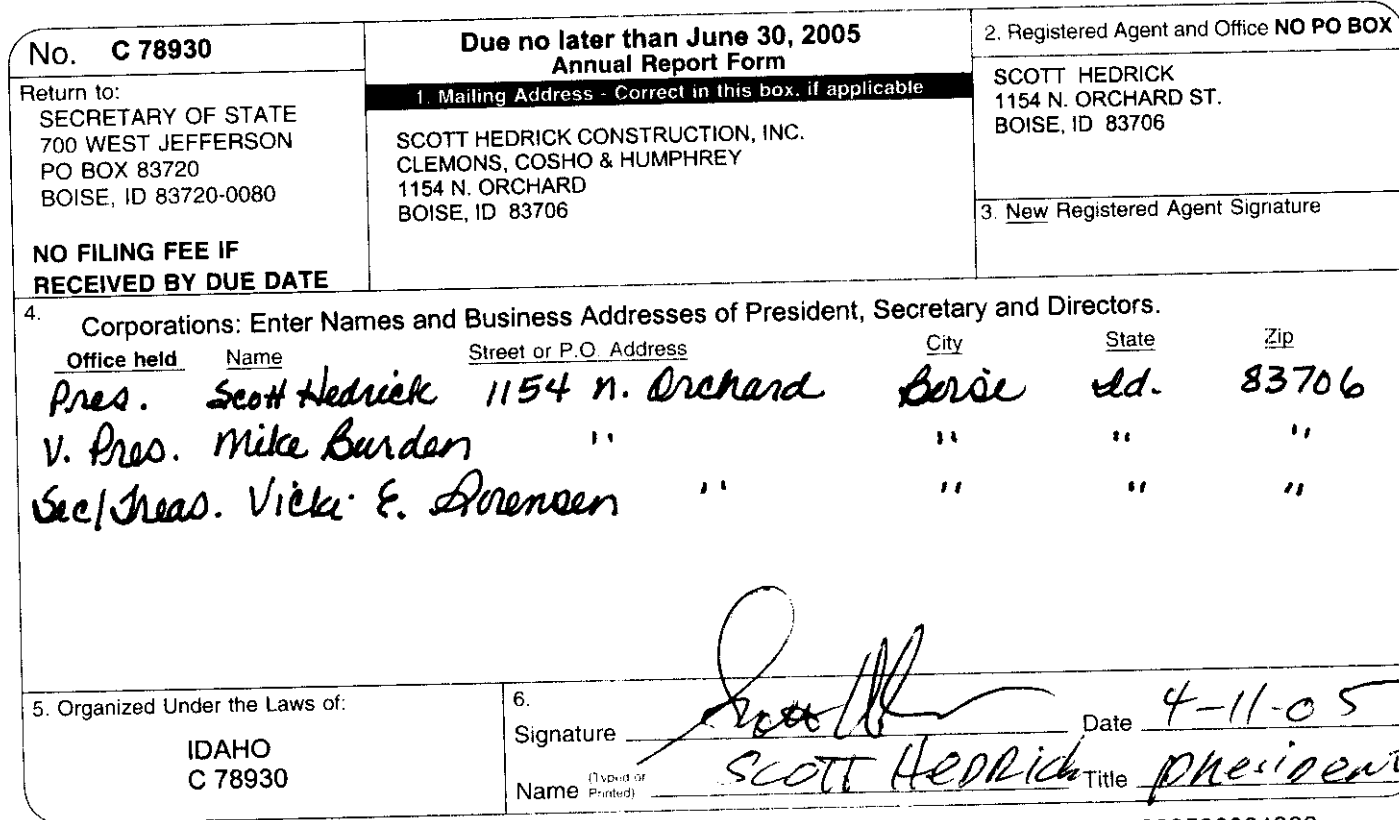 No. C 78930
Return to:
SECRETARY OF STATE
700 WEST JEFFERSON
PO BOX 83720
BOISE, ID 83720-0080
NO FILING FEE IF
RECEIVED BY DUE DATE
Due no later than June 30, 2005
Annual Report Form
1. Mailing Address - Correct in this box, if applicable
SCOTT HEDRICK CONSTRUCTION, INC.
CLEMONS, COSHO & HUMPHREY
1154 N. ORCHARD
BOISE, ID 83706
2. Registered Agent and Office NO PO BOX
SCOTT HEDRICK
1154 N. ORCHARD ST.
BOISE, ID 83706
3. New Registered Agent Signature
4. Corporations: Enter Names and Business Addresses of President, Secretary and Directors.
Office held Name Street or P.O. Address City State Zip
Pres. Scott Hedrick 1154 N. Orchard Boise Id. 83706
V. Pres. Mike Burden " " " "
Sec/Treas. Vicki E. Sorensen " " " "
5. Organized Under the Laws of:
IDAHO
C 78930
6.
Signature Date 4-11-05
Name (Typed or Printed) SCOTT HEDRICK Title president